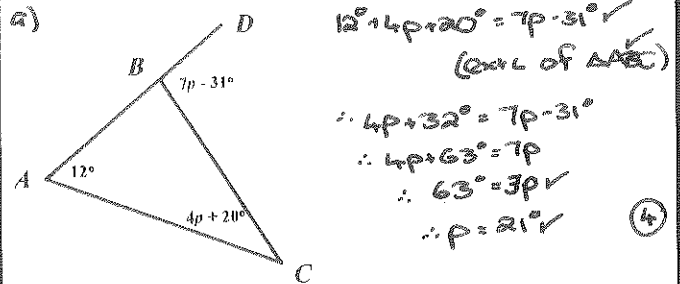 a)
D
B
7p - 31°
A
12°
4p + 20°
C
12° + 4p + 20° = 7p - 31° ✓
(ext∠ of △ABC) ✓
∴ 4p + 32° = 7p - 31°
∴ 4p + 63° = 7p
∴ 63° = 3p ✓
∴ p = 21° ✓
4